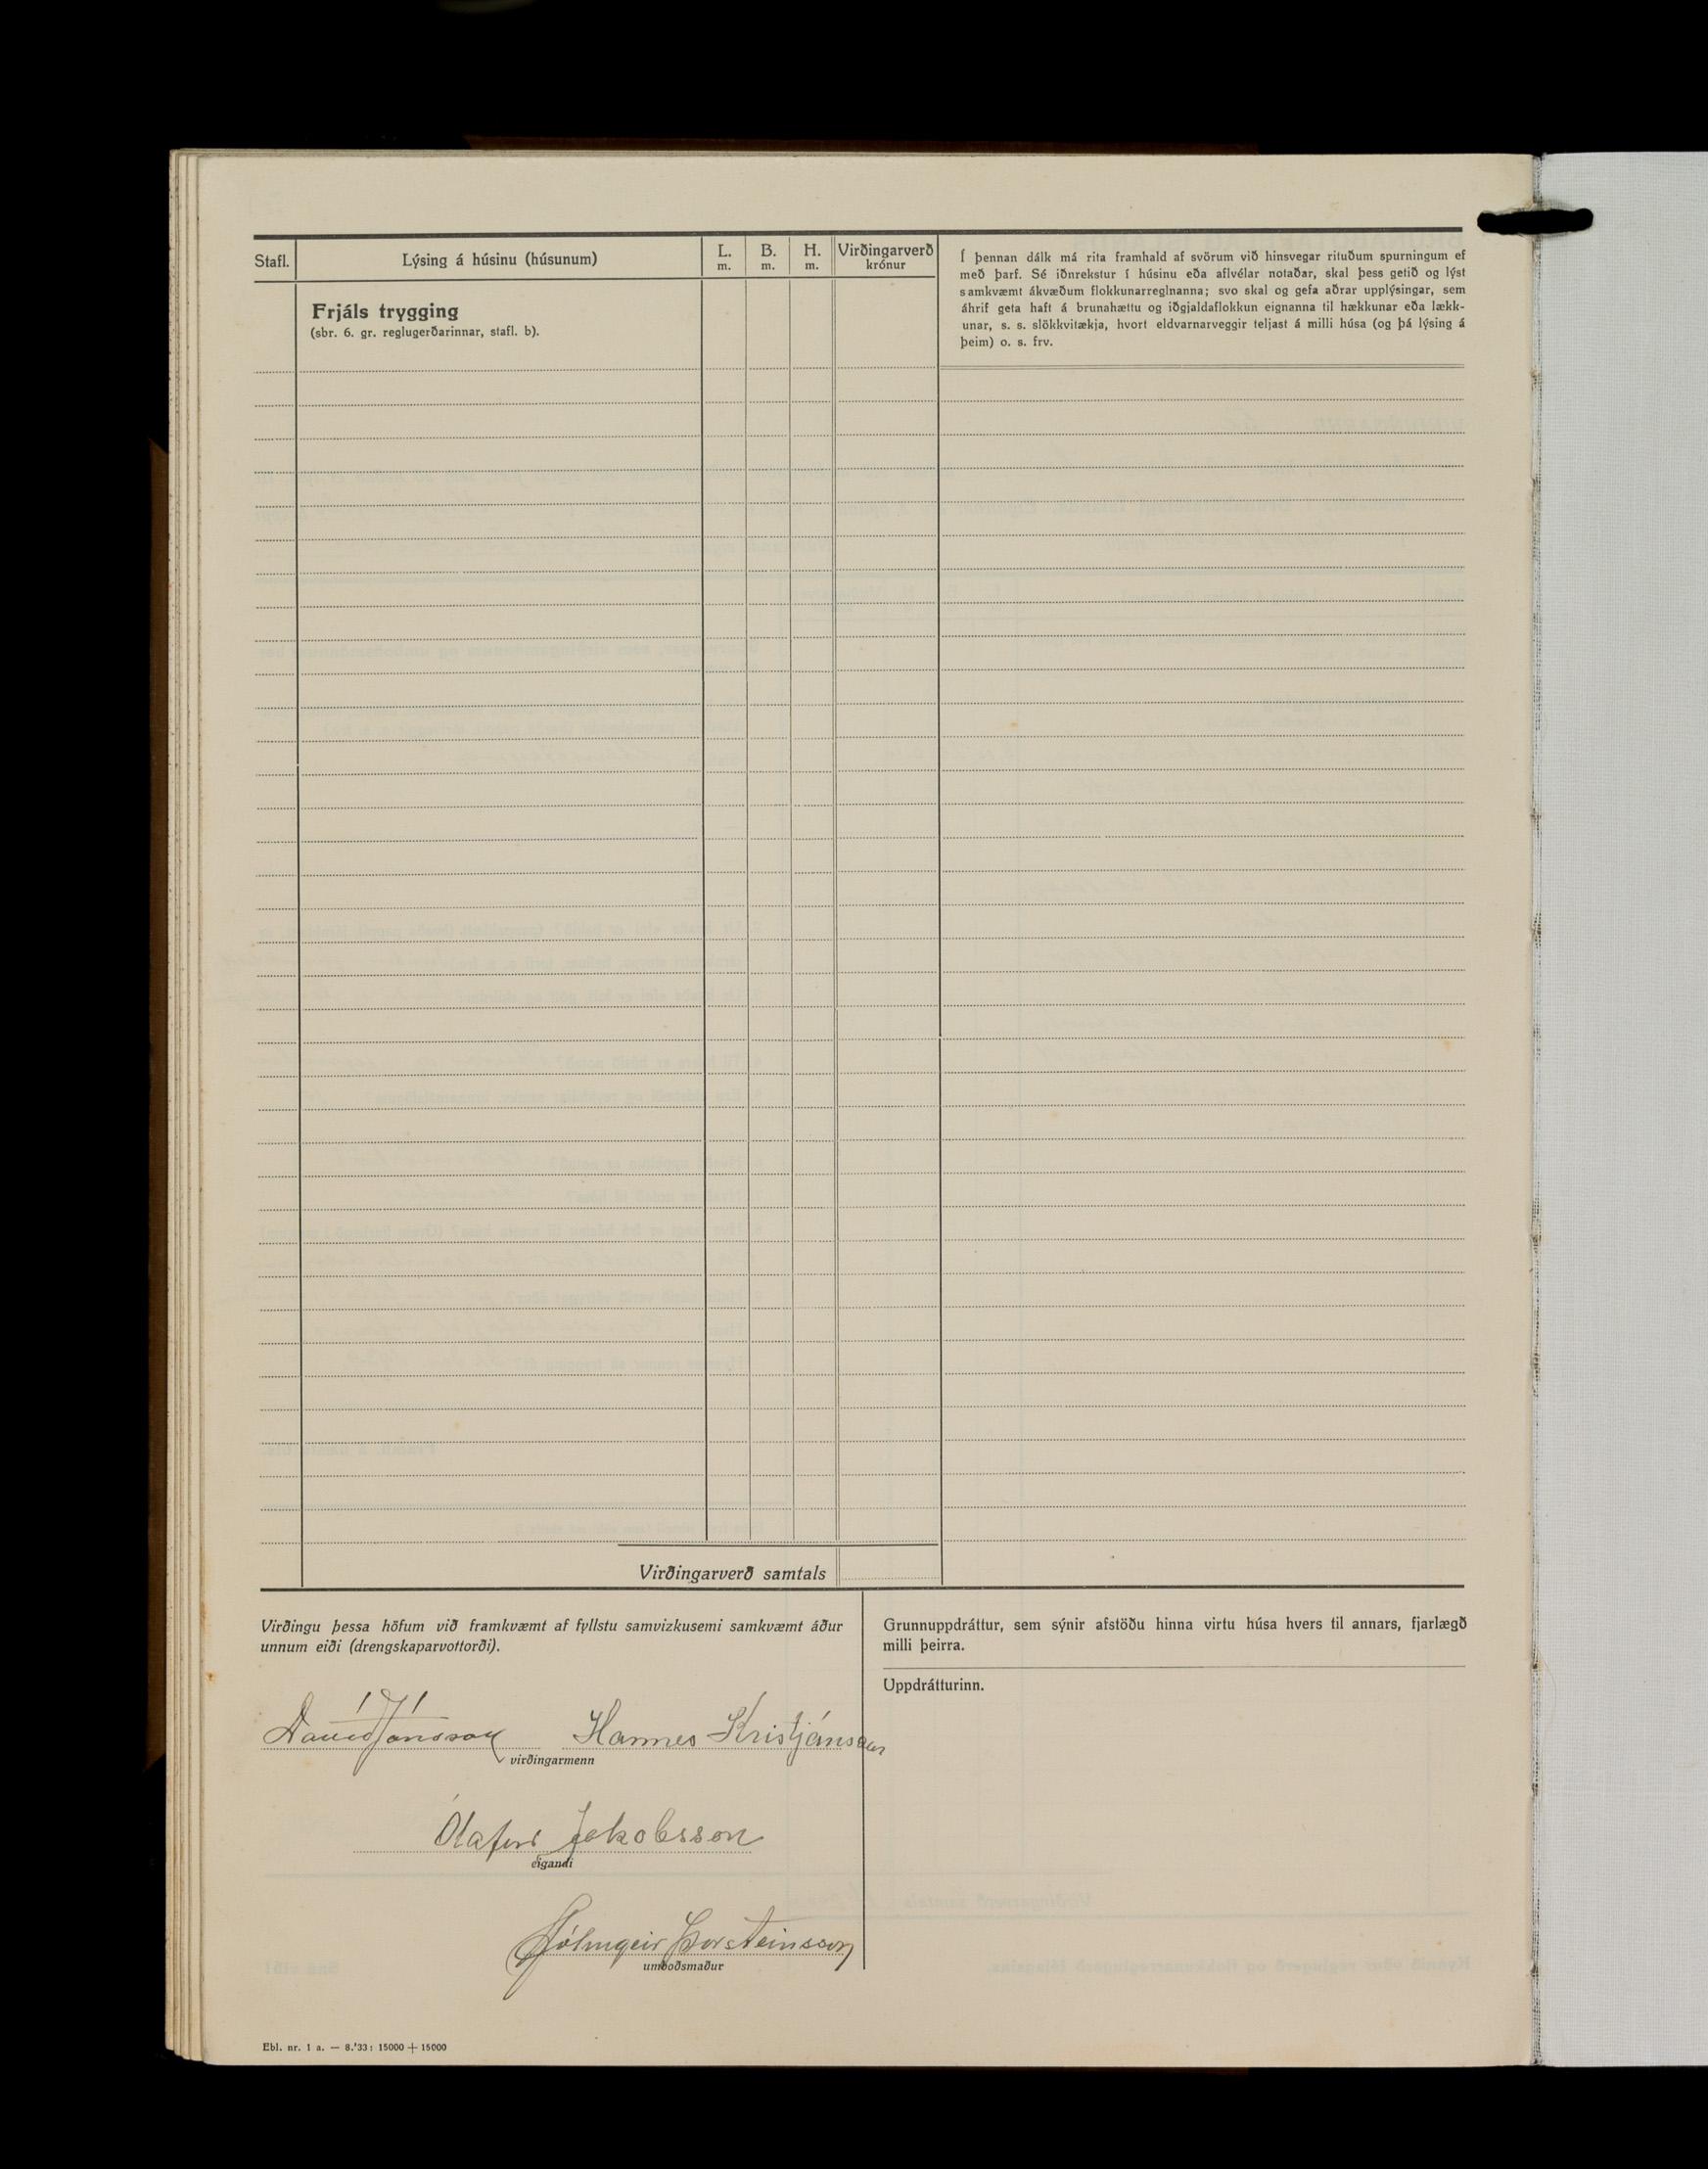 Stafl.
Lýsing á húsinu (húsunum)
L.
m.
B.
m.
H.
m.
Virðingarverð
krónur
Frjáls trygging
(sbr. 6. gr. reglugerðarinnar, stafl. b).
Í þennan dálk má rita framhald af svörum við hinsvegar rituðum spurningum ef
með þarf. Sé iðnrekstur í húsinu eða aflvélar notaðar, skal þess getið og lýst
samkvæmt ákvæðum flokkunarreglnanna; svo skal og gefa aðrar upplýsingar, sem
áhrif geta haft á brunahættu og iðgjaldaflokkun eignanna til hækkunar eða lækk-
unar, s. s. slökkvitækja, hvort eldvarnarveggir teljast á milli húsa (og þá lýsing á
þeim) o. s. frv.
Virðingarverð samtals
Virðingu þessa höfum við framkvæmt af fyllstu samvizkusemi samkvæmt áður
unnum eiði (drengskaparvottorði).
Davíð Jónsson Hannes Kristjánsson
virðingarmenn
Ólafur Jakobsson
eigandi
Hólmgeir Þorsteinsson
umboðsmaður
Grunnuppdráttur, sem sýnir afstöðu hinna virtu húsa hvers til annars, fjarlægð
milli þeirra.
Uppdrátturinn.
Ebl. nr. 1 a. — 8.'33: 15000 + 15000